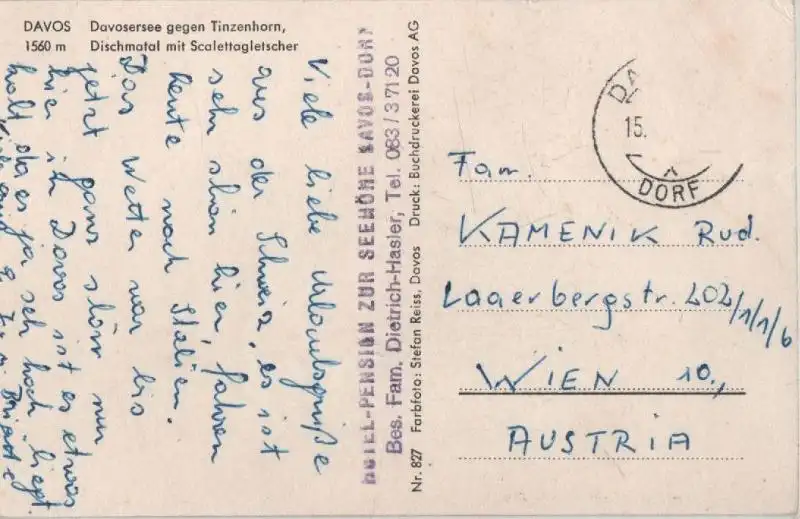 DAVOS Davosersee gegen Tinzenhorn,
1560 m Dischmatal mit Scalettagletscher
Viele liebe Urlaubsgrüße
aus der Schweiz, es ist
sehr schön hier, fahren
heute noch Italien.
Das Wetter war bis
jetzt ganz schön nur
hier in Davos ist es etwas
kalt da es ja sehr hoch liegt.
HOTEL-PENSION ZUR SEEHÖHE DAVOS-DORF
Bes. Fam. Dietrich-Hasler, Tel. 083/3 71 20
Nr. 827 Farbfoto: Stefan Reiss, Davos Druck: Buchdruckerei Davos AG
DA
15.
DORF
Fam.
KAMENIK Rud.
Laaerbergstr. 202/1/1/6
WIEN 10.,
AUSTRIA